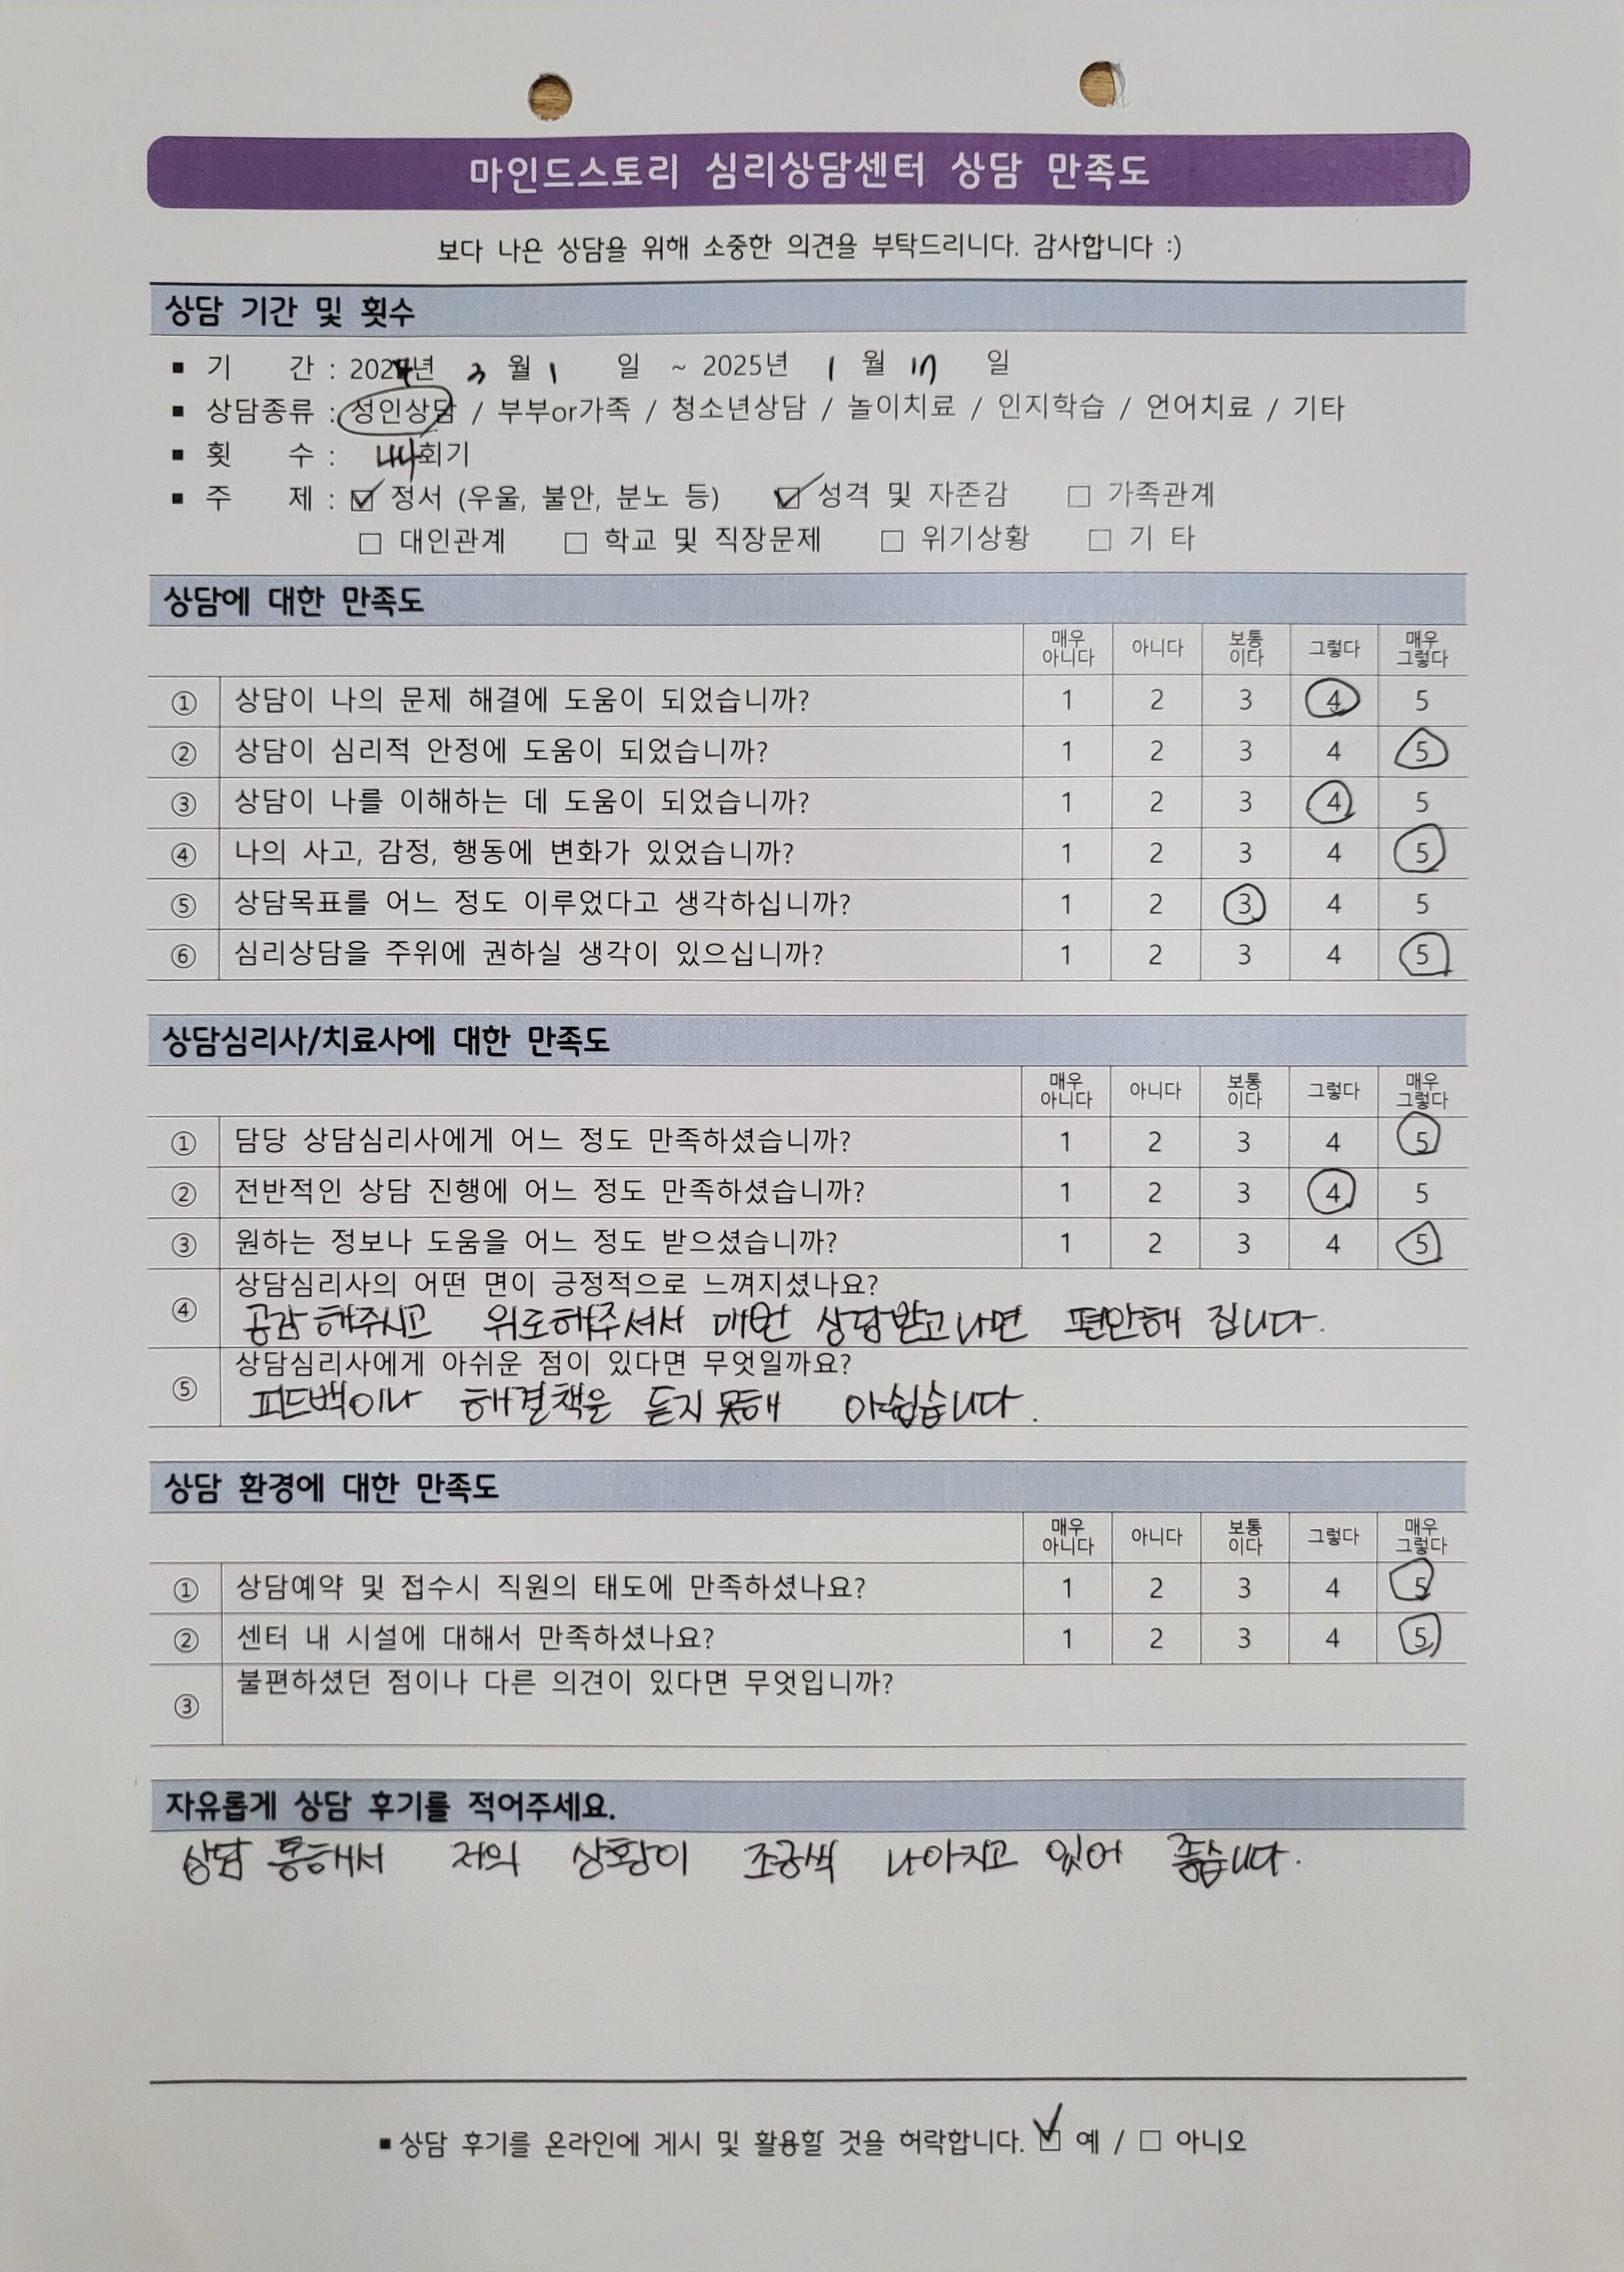 마인드스토리 심리상담센터 상담 만족도
보다 나은 상담을 위해 소중한 의견을 부탁드리니다. 감사합니다 :)
상담 기간 및 횟수
▪ 기 간 : 2024년 3 월 1 일 ~ 2025년 1 월 17 일
▪ 상담종류 : 성인상담 / 부부or가족 / 청소년상담 / 놀이치료 / 인지학습 / 언어치료 / 기타
▪ 횟 수 : 44회기
▪ 주 제 : ☑ 정서 (우울, 불안, 분노 등) ☑ 성격 및 자존감 □ 가족관계
□ 대인관계 □ 학교 및 직장문제 □ 위기상황 □ 기 타
상담에 대한 만족도
매우 아니다 아니다 보통 이다 그렇다 매우 그렇다
① 상담이 나의 문제 해결에 도움이 되었습니까? 1 2 3 4 5
② 상담이 심리적 안정에 도움이 되었습니까? 1 2 3 4 5
③ 상담이 나를 이해하는 데 도움이 되었습니까? 1 2 3 4 5
④ 나의 사고, 감정, 행동에 변화가 있었습니까? 1 2 3 4 5
⑤ 상담목표를 어느 정도 이루었다고 생각하십니까? 1 2 3 4 5
⑥ 심리상담을 주위에 권하실 생각이 있으십니까? 1 2 3 4 5
상담심리사/치료사에 대한 만족도
매우 아니다 아니다 보통 이다 그렇다 매우 그렇다
① 담당 상담심리사에게 어느 정도 만족하셨습니까? 1 2 3 4 5
② 전반적인 상담 진행에 어느 정도 만족하셨습니까? 1 2 3 4 5
③ 원하는 정보나 도움을 어느 정도 받으셨습니까? 1 2 3 4 5
④ 상담심리사의 어떤 면이 긍정적으로 느껴지셨나요?
공감해주시고 위로해주셔서 매번 상담받고나면 편안해 집니다.
⑤ 상담심리사에게 아쉬운 점이 있다면 무엇일까요?
피드백이나 해결책을 듣지 못해 아쉽습니다.
상담 환경에 대한 만족도
매우 아니다 아니다 보통 이다 그렇다 매우 그렇다
① 상담예약 및 접수시 직원의 태도에 만족하셨나요? 1 2 3 4 5
② 센터 내 시설에 대해서 만족하셨나요? 1 2 3 4 5
③ 불편하셨던 점이나 다른 의견이 있다면 무엇입니까?
자유롭게 상담 후기를 적어주세요.
상담 통해서 저의 상황이 조금씩 나아지고 있어 좋습니다.
▪ 상담 후기를 온라인에 게시 및 활용할 것을 허락합니다. ☑ 예 / □ 아니오